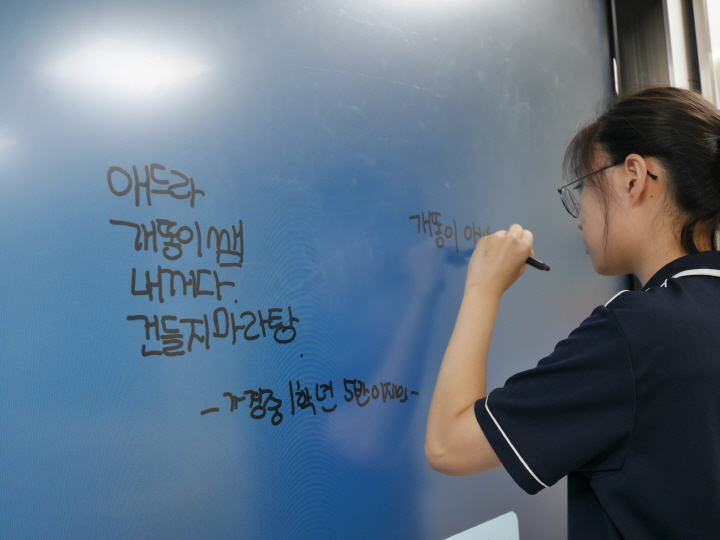 애드라
개똥이쌤
내꺼다.
건들지마라탕
-가정중 1학년 5반 이지민-
개똥이